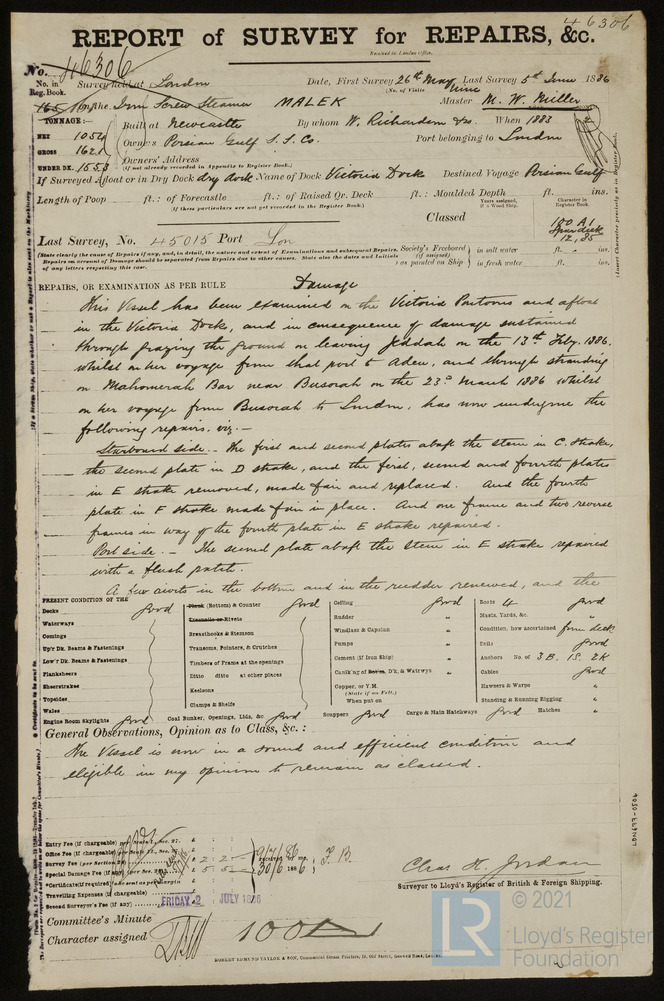 46306
REPORT of SURVEY for REPAIRS, &c.
Received in London office.
No. 46306
No. in Reg. Book. Survey held at London Date, First Survey 26th May Last Survey 5th June 1886
(No. of Visits nine)
165 on the Iron Screw Steamer MALEK Master M. W. Miller
TONNAGE:—
NET 1052
GROSS 1621
UNDER DK. 1553
Built at Newcastle By whom W. Richardson &Co. When 1883
Owners Persian Gulf S. S. Co. Port belonging to London
Owners' Address
(If not already recorded in Appendix to Register Book.)
If Surveyed Afloat or in Dry Dock dry dock Name of Dock Victoria Docks Destined Voyage Persian Gulf
Length of Poop ft.: of Forecastle ft.: of Raised Qr. Deck ft.: Moulded Depth ft. ins.
(If these particulars are not yet recorded in the Register Book.)
Years assigned, if a Wood Ship. Character in Register Book.
Classed 100 A1
Spardeck
12, 85
Last Survey, No. 45015 Port Lon
(State clearly the cause of Repairs if any, and, in detail, the nature and extent of Examinations and subsequent Repairs.
Repairs on account of Damage should be separated from Repairs due to other causes. State also the dates and Initials
of any letters respecting this case.
Society's Freeboard (if assigned) as painted on Ship
in salt water ft. ins.
in fresh water ft. ins.
REPAIRS, OR EXAMINATION AS PER RULE Damage
This Vessel has been examined on the Victoria Pontoons and afloat
in the Victoria Docks, and in consequence of damage sustained
through grazing the ground on leaving Jeddah on the 13th Feby. 1886.
whilst on her voyage from that port to Aden, and through stranding
on Mahomerah Bar near Busorah on the 23rd March 1886 whilst
on her voyage from Busorah to London, has now undergone the
following repairs, viz:—
Starboard side.— The first and second plates abaft the stem in C. Strake,
the second plate in D strake, and the first, second and fourth plates
in E strake removed, made fair and replaced. And the fourth
plate in F strake made fair in place. And one frame and two reverse
frames in way of the fourth plate in E strake repaired.
Port side.— The second plate abaft the Stem in E strake repaired
with a flush patch.
A few rivets in the bottom and in the rudder renewed, and the
PRESENT CONDITION OF THE
Decks good
Waterways
Comings
Upr Dk. Beams & Fastenings
Lowr Dk. Beams & Fastenings
Planksheers
Sheerstrakes
Topsides
Wales
Engine Room Skylights good
Plank (Bottom) & Counter good
Treenails or Rivets
Breasthooks & Stemson
Transoms, Pointers, & Crutches
Timbers of Frame at the openings
Ditto ditto at other places
Keelsons
Clamps & Shelfs
Coal Bunker, Openings, Lids, &c good
Ceiling good
Rudder "
Windlass & Capstan "
Pumps "
Cement (if Iron Ship) "
Caulking of Botm, D'k, & Watrwys "
Copper, or Y.M.
(State if on Felt.)
When put on
Scuppers good Cargo & Main Hatchways good Hatches "
Boats 4 good
Masts, Yards, &c. "
Condition, how ascertained from deck
Sails good
Anchors No. of 3B. 1S. 2K
Cables good
Hawsers & Warps "
Standing & Running Rigging "
General Observations, Opinion as to Class, &c.:
The Vessel is now in a sound and efficient condition and
eligible in my opinion to remain as classed.
Entry Fee (if chargeable) per Scale 1., Sec. 27. £
Office Fee (if chargeable) per Scale 1., Sec. 27. £
Survey Fee (per Section 28) £ 2 . 2 .
Special Damage Fee (if any) (per Sec. 28) £ 5 . 5 .
*Certificate (if required) to be sent as per margin
Travelling Expenses (if chargeable) £
Second Surveyor's Fee (if any)
9/7/86
30/6 1886
F. B.
Chas H. Jordan
Surveyor to Lloyd's Register of British & Foreign Shipping.
FRIDAY 2 JULY 1886
Committee's Minute
Character assigned 100A
ROBERT EDMUND TAYLOR & SON, Commercial Steam Printers, 19, Old Street, Goswell Road, London.
LR © 2021
Lloyd's Register
Foundation